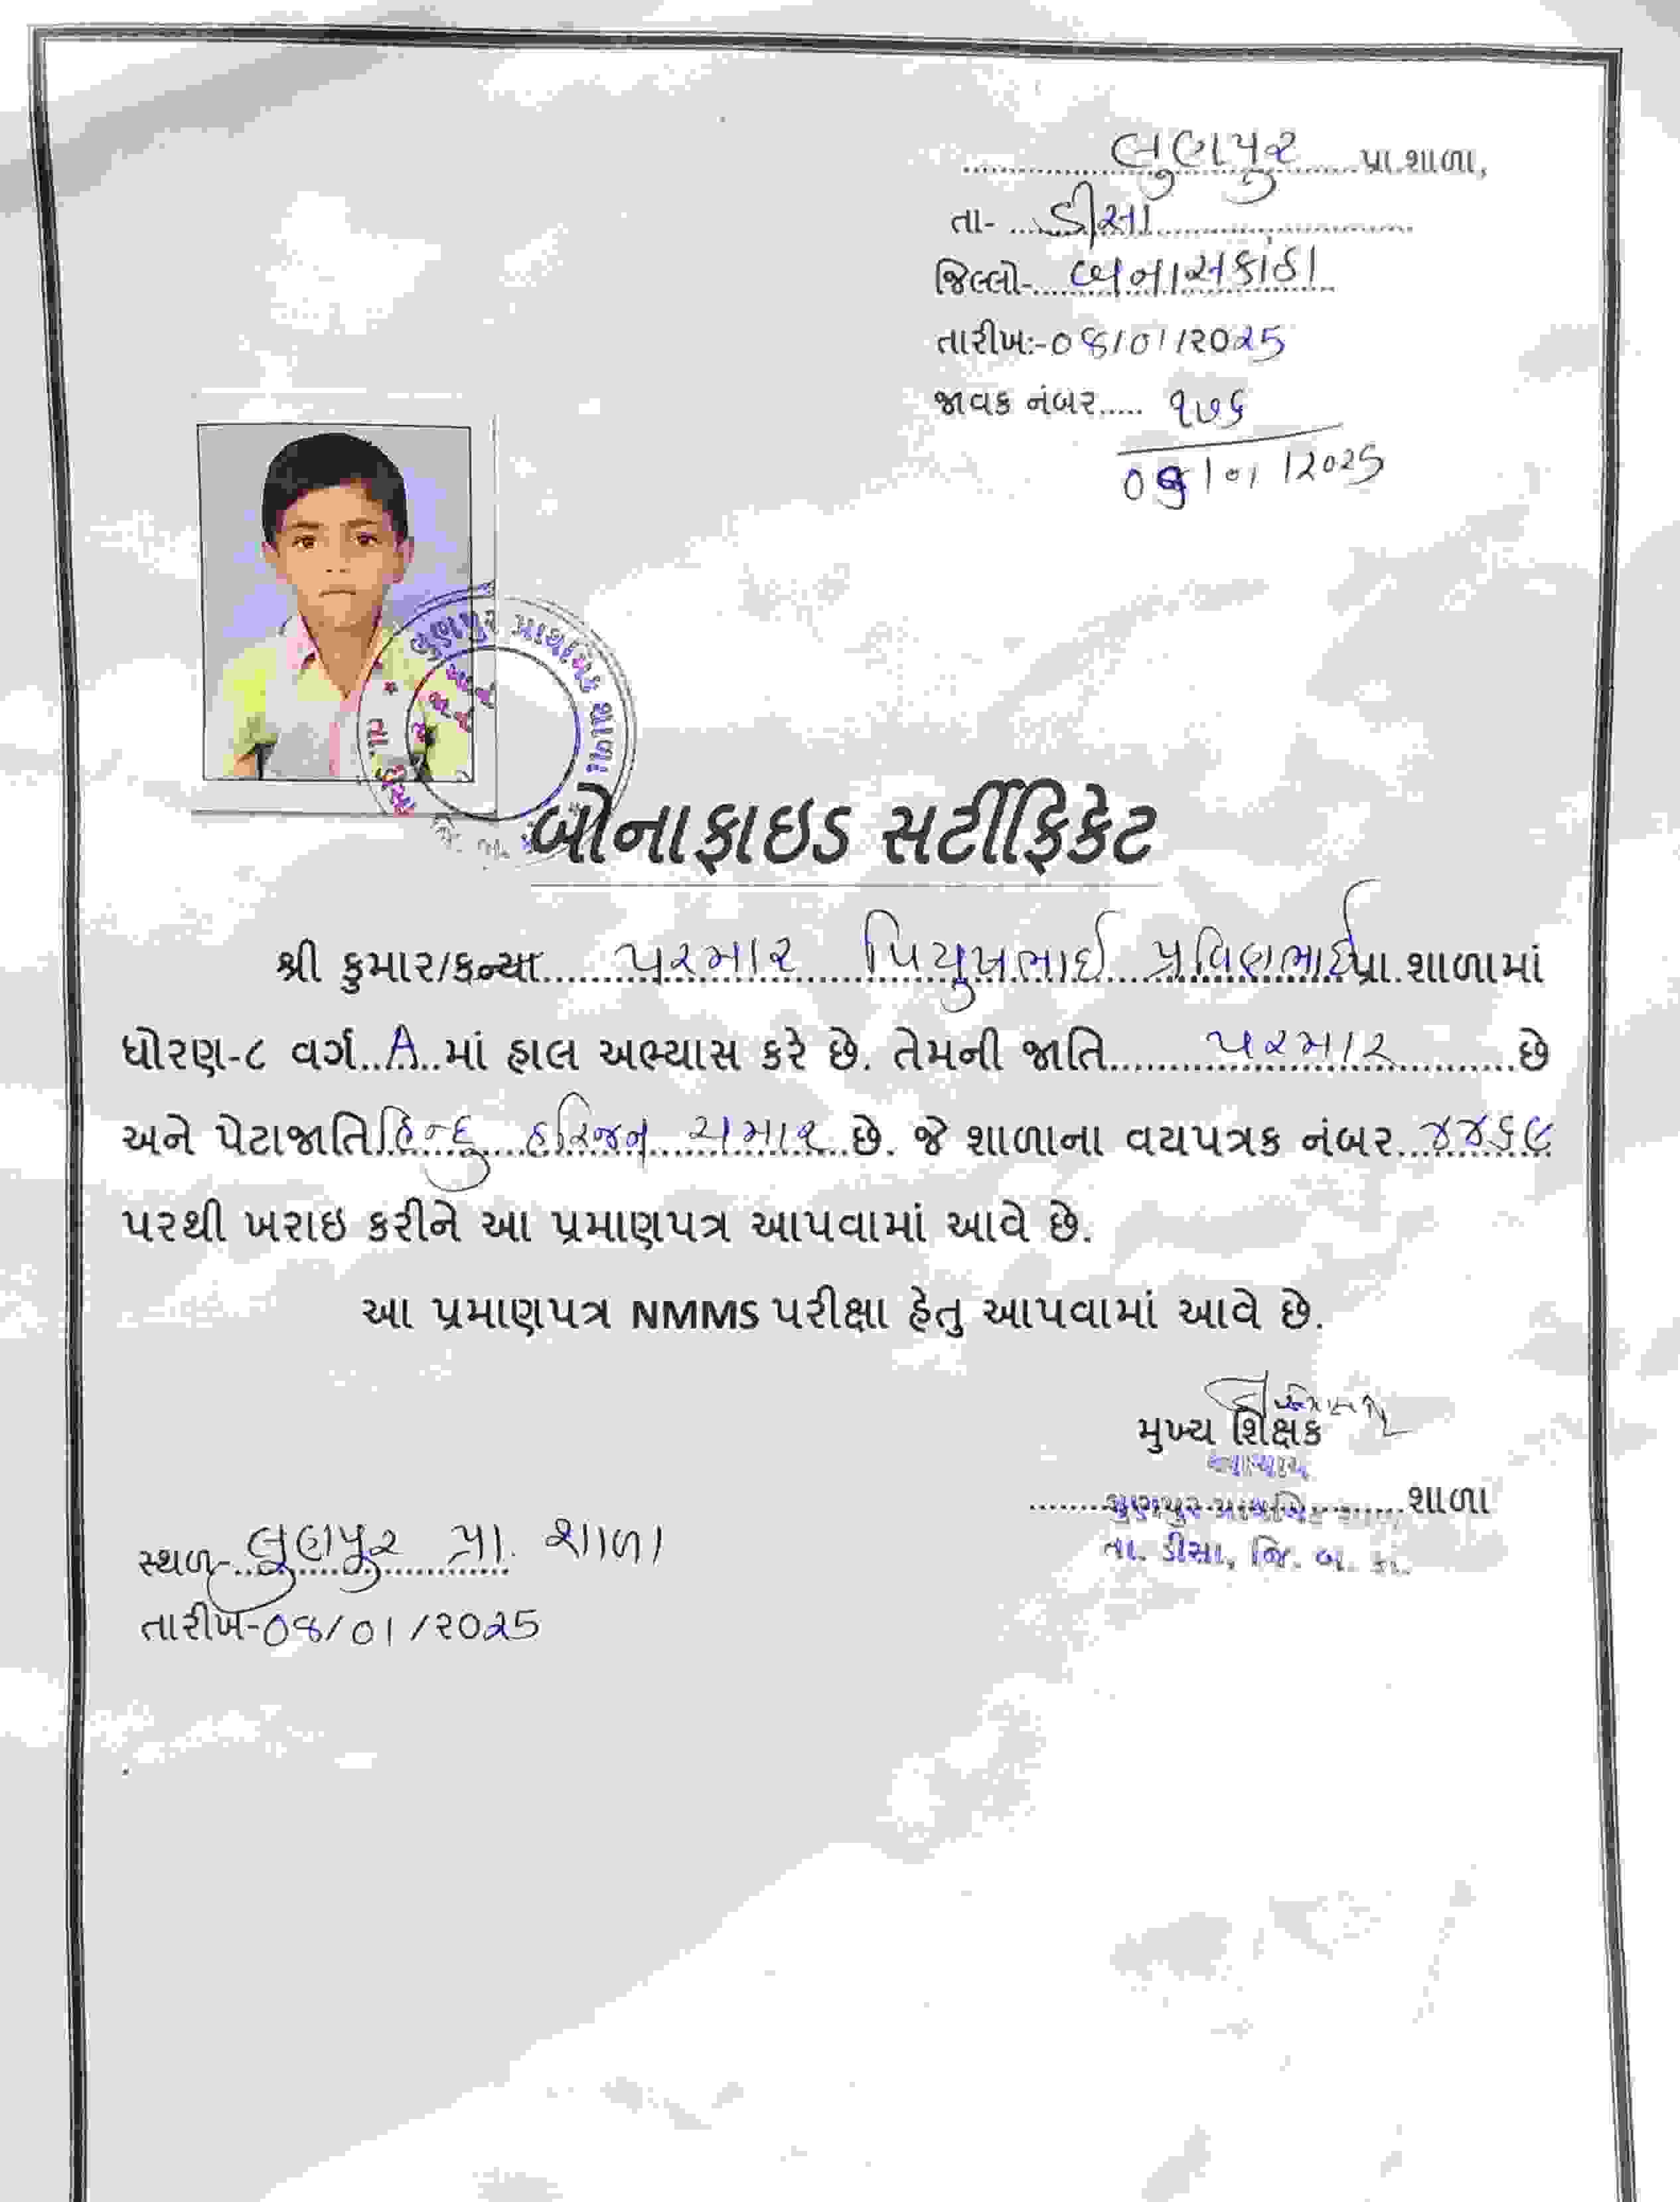 લુણપુર પ્રા.શાળા,
તા- ડીસા
જિલ્લો- બનાસકાંઠા
તારીખ:-૦૪/૦૧/૨૦૨5
જાવક નંબર..... ૧૭૬
૦૪/૦૧/૨૦૨5
લુણપુર પ્રાથમિક શાળા
તા. ડીસા
બોનાફાઇડ સર્ટીફિકેટ
શ્રી કુમાર/કન્યા પરમાર પિયુષભાઈ પ્રવિણભાઈ પ્રા.શાળામાં
ધોરણ-૮ વર્ગ..A..માં હાલ અભ્યાસ કરે છે. તેમની જાતિ પરમાર છે
અને પેટાજાતિ હિન્દુ હરિજન ચમાર છે. જે શાળાના વયપત્રક નંબર ૪૪૬૯
પરથી ખરાઇ કરીને આ પ્રમાણપત્ર આપવામાં આવે છે.
આ પ્રમાણપત્ર NMMS પરીક્ષા હેતુ આપવામાં આવે છે.
મુખ્ય શિક્ષક
આચાર્ય
લુણપુર પ્રાથમિક શાળા
તા. ડીસા, જિ. બ. કાં.
સ્થળ- લુણપુર પ્રા. શાળા
તારીખ-૦૪/૦૧/૨૦૨5